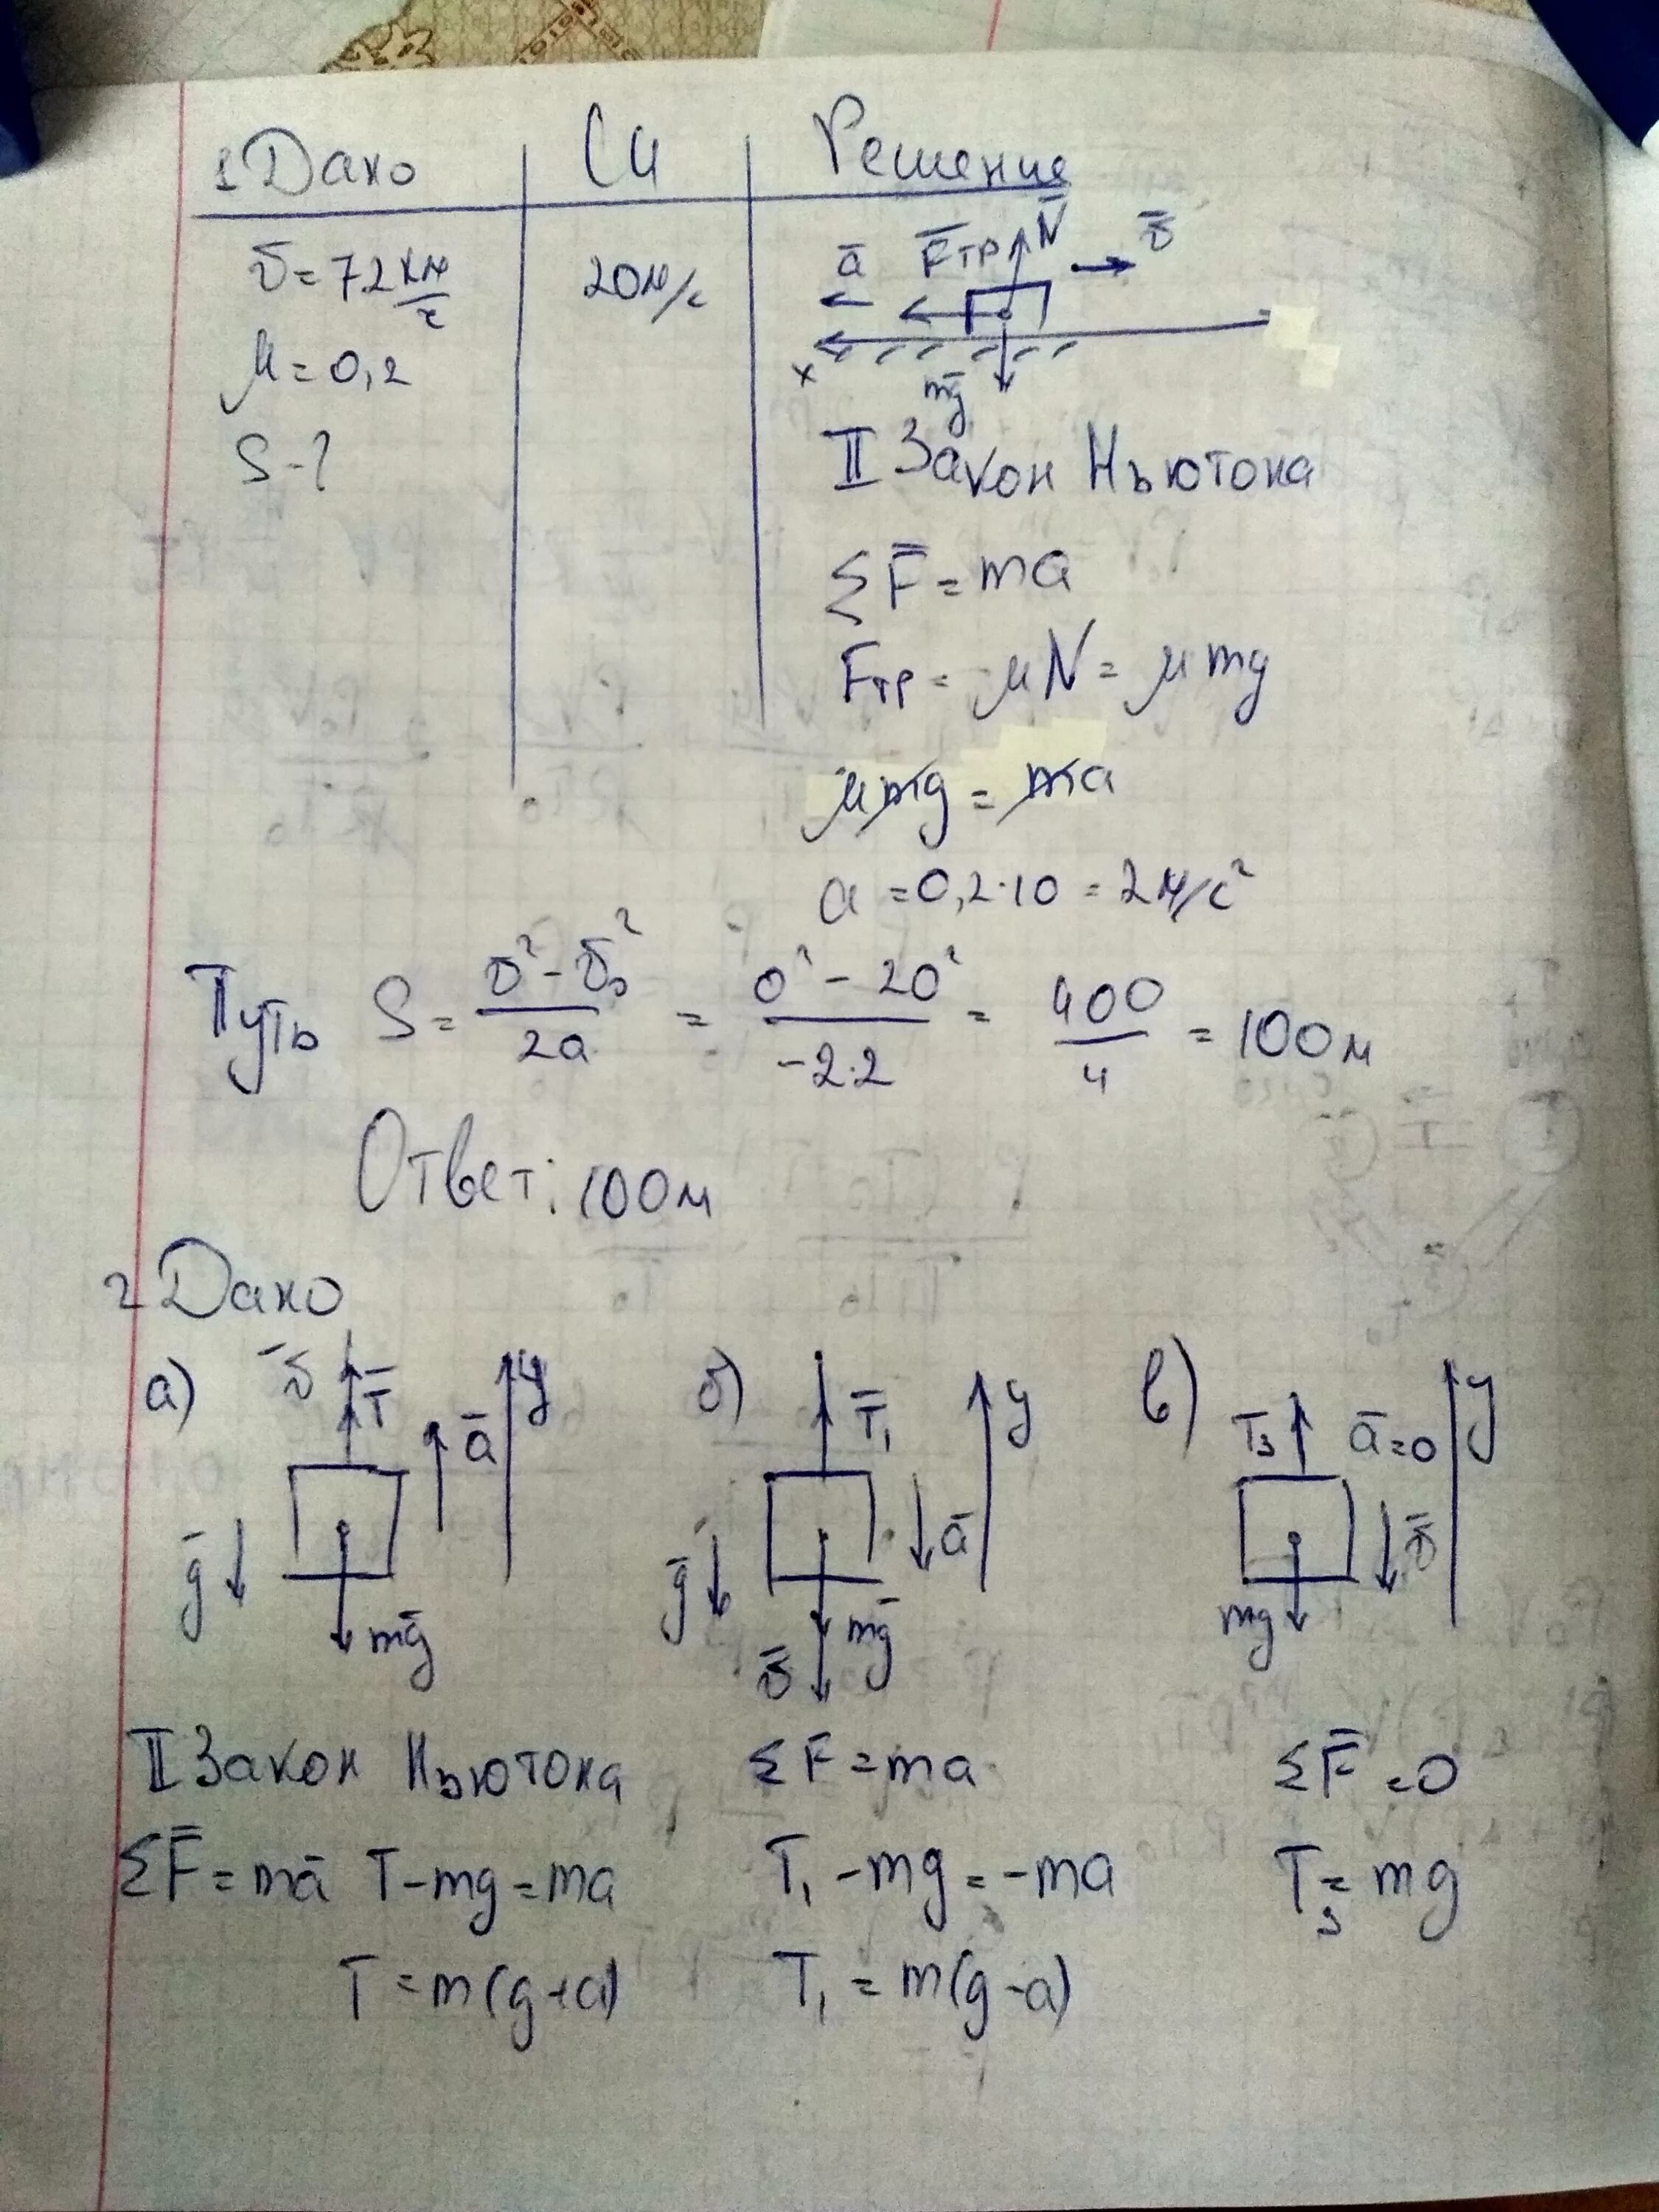 1 Дано СИ Решение
υ̅ = 72 км/ч 20 м/с
a̅ F̅тр N̅ υ̅
μ = 0,2
x mg̅
S - ?
II Закон Ньютона
ΣF̅ = ma
Fтр = μN = μmg
μmg = ma
a = 0,2·10 = 2 м/с²
Путь S = (υ² - υ₀²)/2a = (0² - 20²)/(-2·2) = 400/4 = 100 м
Ответ: 100 м
2 Дано
а) υ̅ T̅ a̅ y g̅ mg̅
б) T̅₁ y a̅ g̅ mg̅ υ̅
в) T₃ a̅=0 y υ̅ mg
II Закон Ньютона ΣF = ma ΣF̅ = 0
ΣF̅ = ma̅ T - mg = ma T₁ - mg = -ma T₃ = mg
T = m(g+a) T₁ = m(g-a)